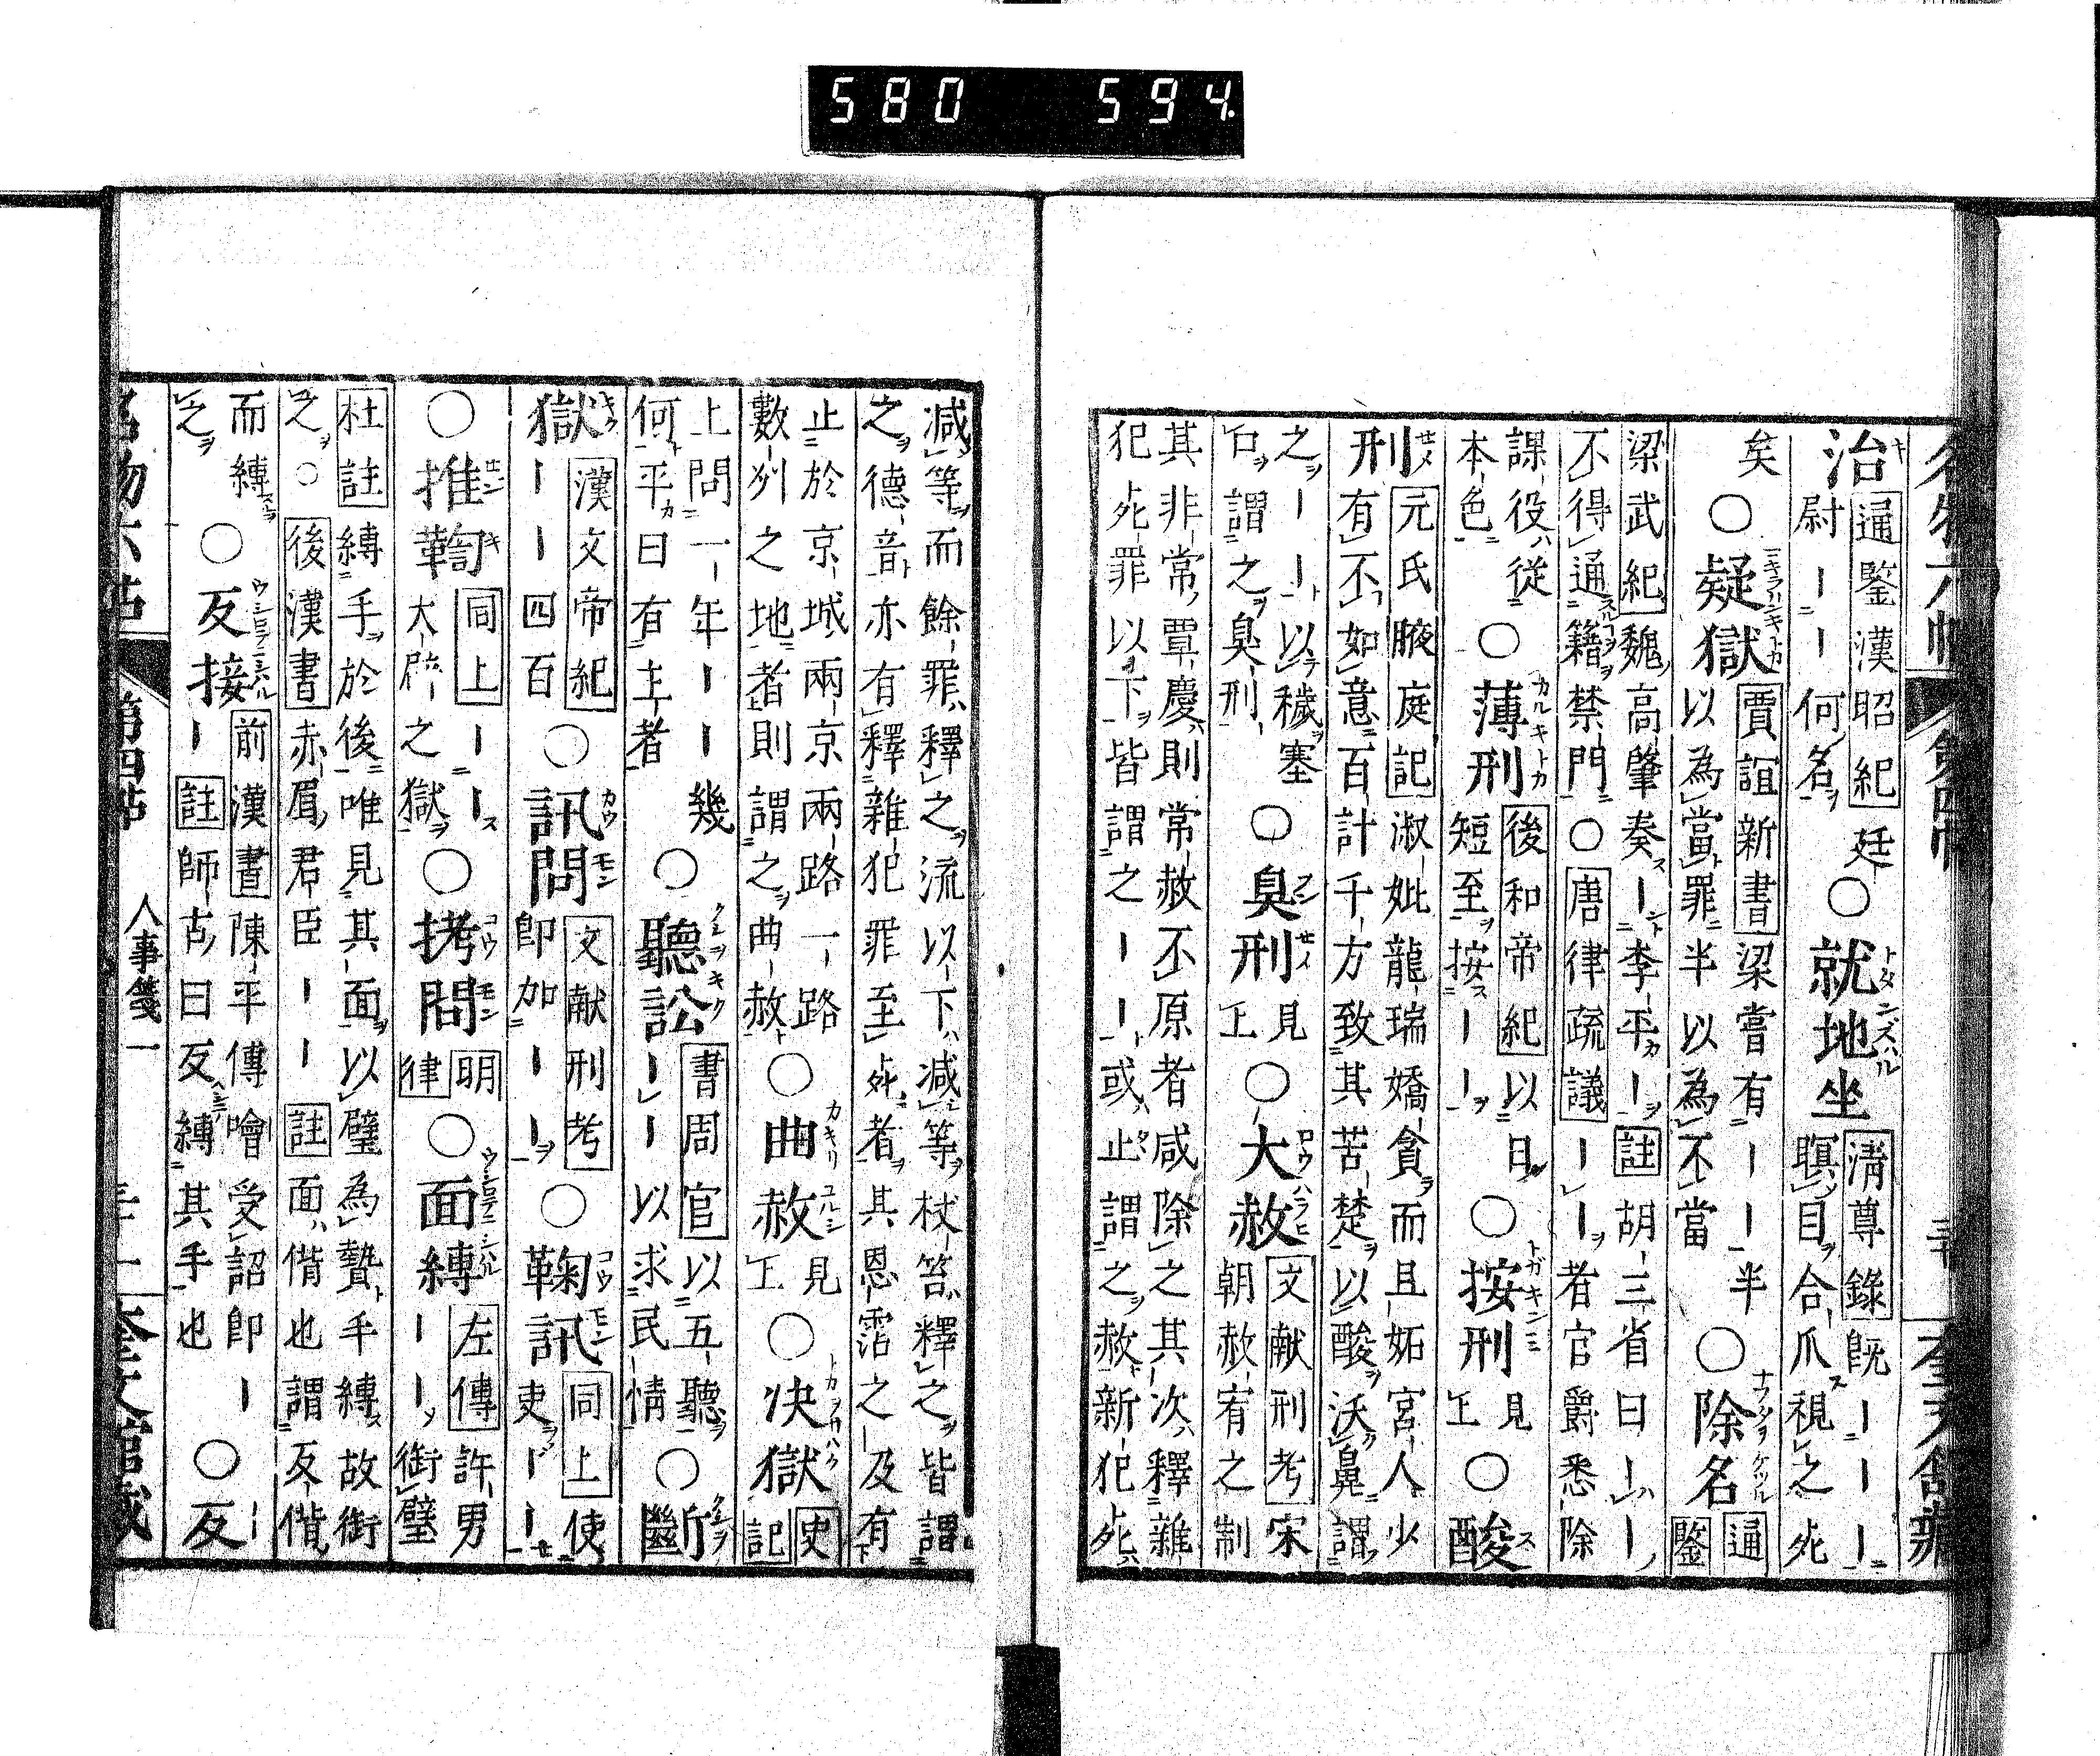 580 594
治 通鑒漢昭紀 廷
尉一一何名 ○就地坐 淸尊錄 旣一一一
瞑目合爪視之死
矣 ○疑獄 賈誼新書 梁嘗有一一半
以為當罪半以為不當 ○除名 通鑒
梁武紀 魏高肇奏一李平一 註 胡三省曰一一
不得通籍禁門 ○ 唐律疏議 一一者官爵悉除
課役從
本色 ○薄刑 後和帝紀 以日
短至按一一 ○按刑 見上 ○酸
刑 元氏腋庭記 淑妣龍瑞嬌貪而且妬宮人少
有不如意百計千方致其苦楚以酸沃鼻謂
之一一以穢塞
口謂之臭刑 ○臭刑 見上 ○大赦 文献刑考 宋
朝赦宥之制
其非常覃慶則常赦不原者咸除之其次釋雜
犯死罪以下皆謂之一一或止謂之赦新犯死
减等而餘罪釋之流以下减等杖笞釋之皆謂
之德音亦有釋雜犯罪至死者其恩霑之及有
止於京城兩京兩路一路
數州之地者則謂之曲赦 ○曲赦 見上 ○决獄 史記
上問一年一一幾
何平曰有主者 ○聽訟 書周官 以五聽
一一以求民情 ○斷
獄 漢文帝紀
一一四百 ○訊問 文献刑考
卽加一一 ○鞠訊 同上 使
吏一一
○推鞫 同上 一一
大辟之獄 ○拷問 明律 ○面縛 左傳 許男
一一銜璧
杜註 縛手於後唯見其面以璧為贄手縛故銜
之 ○ 後漢書 赤眉君臣一一 註 面偝也謂反偝
而縛
之 ○反接 前漢書 陳平傳噲受詔卽一一
註 師古曰反縛其手也 ○反
第四帖 人事箋一